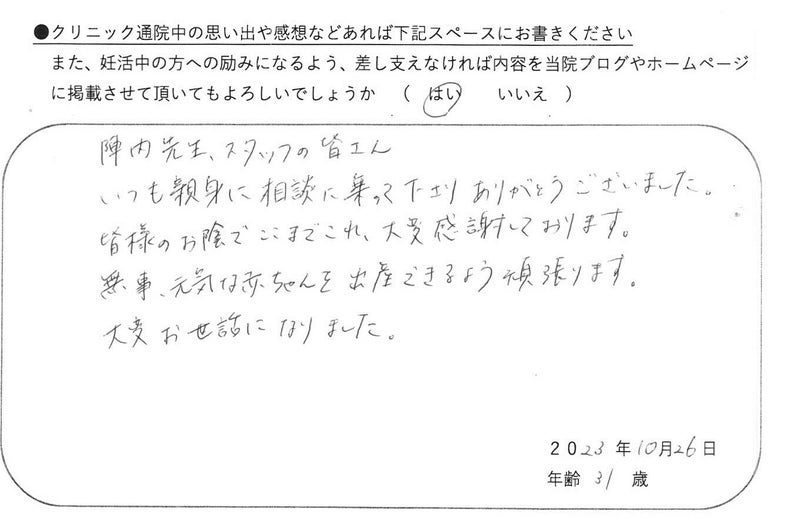 ●クリニック通院中の思い出や感想などあれば下記スペースにお書きください
また、妊活中の方への励みになるよう、差し支えなければ内容を当院ブログやホームページ
に掲載させて頂いてもよろしいでしょうか （ はい いいえ ）
陣内先生、スタッフの皆さん
いつも親身に相談に乗って下さり ありがとうございました。
皆様のお陰でここまでこれ、大変感謝しております。
無事、元気な赤ちゃんを出産できるよう頑張ります。
大変お世話になりました。
2023年10月26日
年齢 31 歳